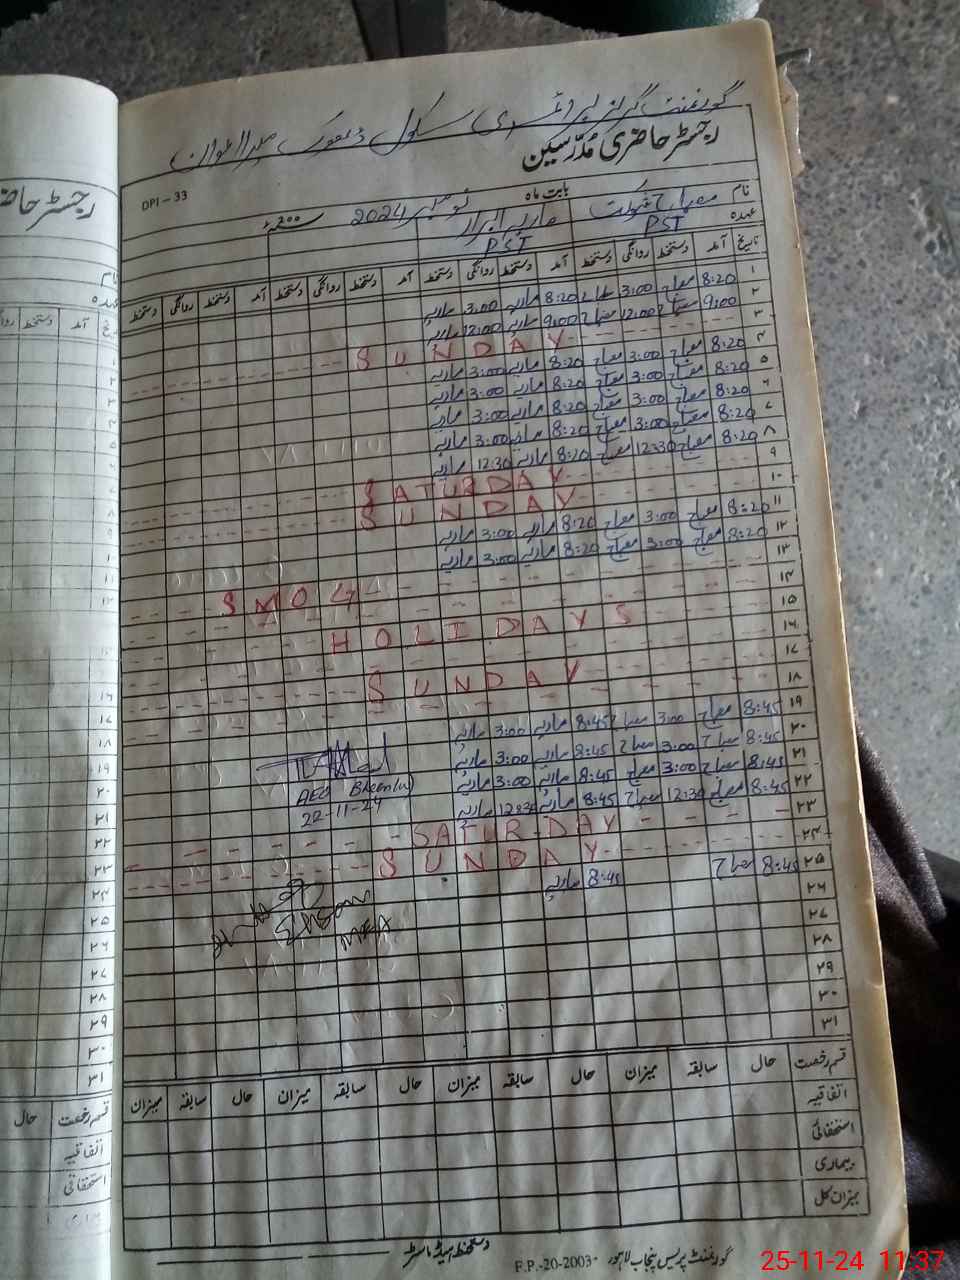 گورنمنٹ گرلز پرائمری سکول ڈھوک
رجسٹر حاضری مدرسین
DPI – 33
بابت ماہ نومبر 2024 ۲۰۰ء
نام معراج شوکت ماریہ
عہدہ PST PST
تاریخ آمد دستخط روانگی دستخط آمد دستخط روانگی دستخط آمد دستخط روانگی دستخط آمد دستخط روانگی دستخط
۱ 8:20 معراج 3:00 معراج 8:20 ماریہ 3:00 ماریہ
۲ 9:00 معراج 12:00 معراج 9:00 ماریہ 12:00 ماریہ
۳ SUNDAY
۴ 8:20 معراج 3:00 معراج 8:20 ماریہ 3:00 ماریہ
۵ 8:20 معراج 3:00 معراج 8:20 ماریہ 3:00 ماریہ
۶ 8:20 معراج 3:00 معراج 8:20 ماریہ 3:00 ماریہ
۷ 8:20 معراج 3:00 معراج 8:20 ماریہ 3:00 ماریہ
۸ 8:20 معراج 12:30 معراج 8:20 ماریہ 12:30 ماریہ
۹ SATURDAY
۱۰ SUNDAY
۱۱ 8:20 معراج 3:00 معراج 8:20 ماریہ 3:00 ماریہ
۱۲ 8:20 معراج 3:00 معراج 8:20 ماریہ 3:00 ماریہ
۱۳
۱۴ SMOG
۱۵
۱۶ HOLIDAYS
۱۷ SUNDAY
۱۸
۱۹ 8:45 معراج 3:00 معراج 8:45 ماریہ 3:00 ماریہ
۲۰ 8:45 معراج 3:00 معراج 8:45 ماریہ 3:00 ماریہ
۲۱ 8:45 معراج 3:00 معراج 8:45 ماریہ 3:00 ماریہ
۲۲ 8:45 معراج 12:30 معراج 8:45 ماریہ 12:30 ماریہ
AEO
22-11-24
۲۳ SATURDAY
۲۴ SUNDAY
۲۵ 8:45 معراج 8:45 ماریہ
MEA
۲۶
۲۷
۲۸
۲۹
۳۰
۳۱
قسم رخصت حال سابقہ میزان حال سابقہ میزان حال سابقہ میزان حال سابقہ میزان
اتفاقیہ
استحقاقی
بیماری
میزان کل
دستخط ہیڈ ماسٹر
گورنمنٹ پریس پنجاب لاہور F.P.-20-2003-
رجسٹر حاضری
نام
عہدہ
آمد دستخط
۱۷
۱۸
۱۹
۲۰
۲۱
۲۲
۲۳
۲۴
۲۵
۲۶
۲۷
۲۸
۲۹
۳۰
۳۱
قسم رخصت حال
اتفاقیہ
استحقاقی
25-11-24 11:37